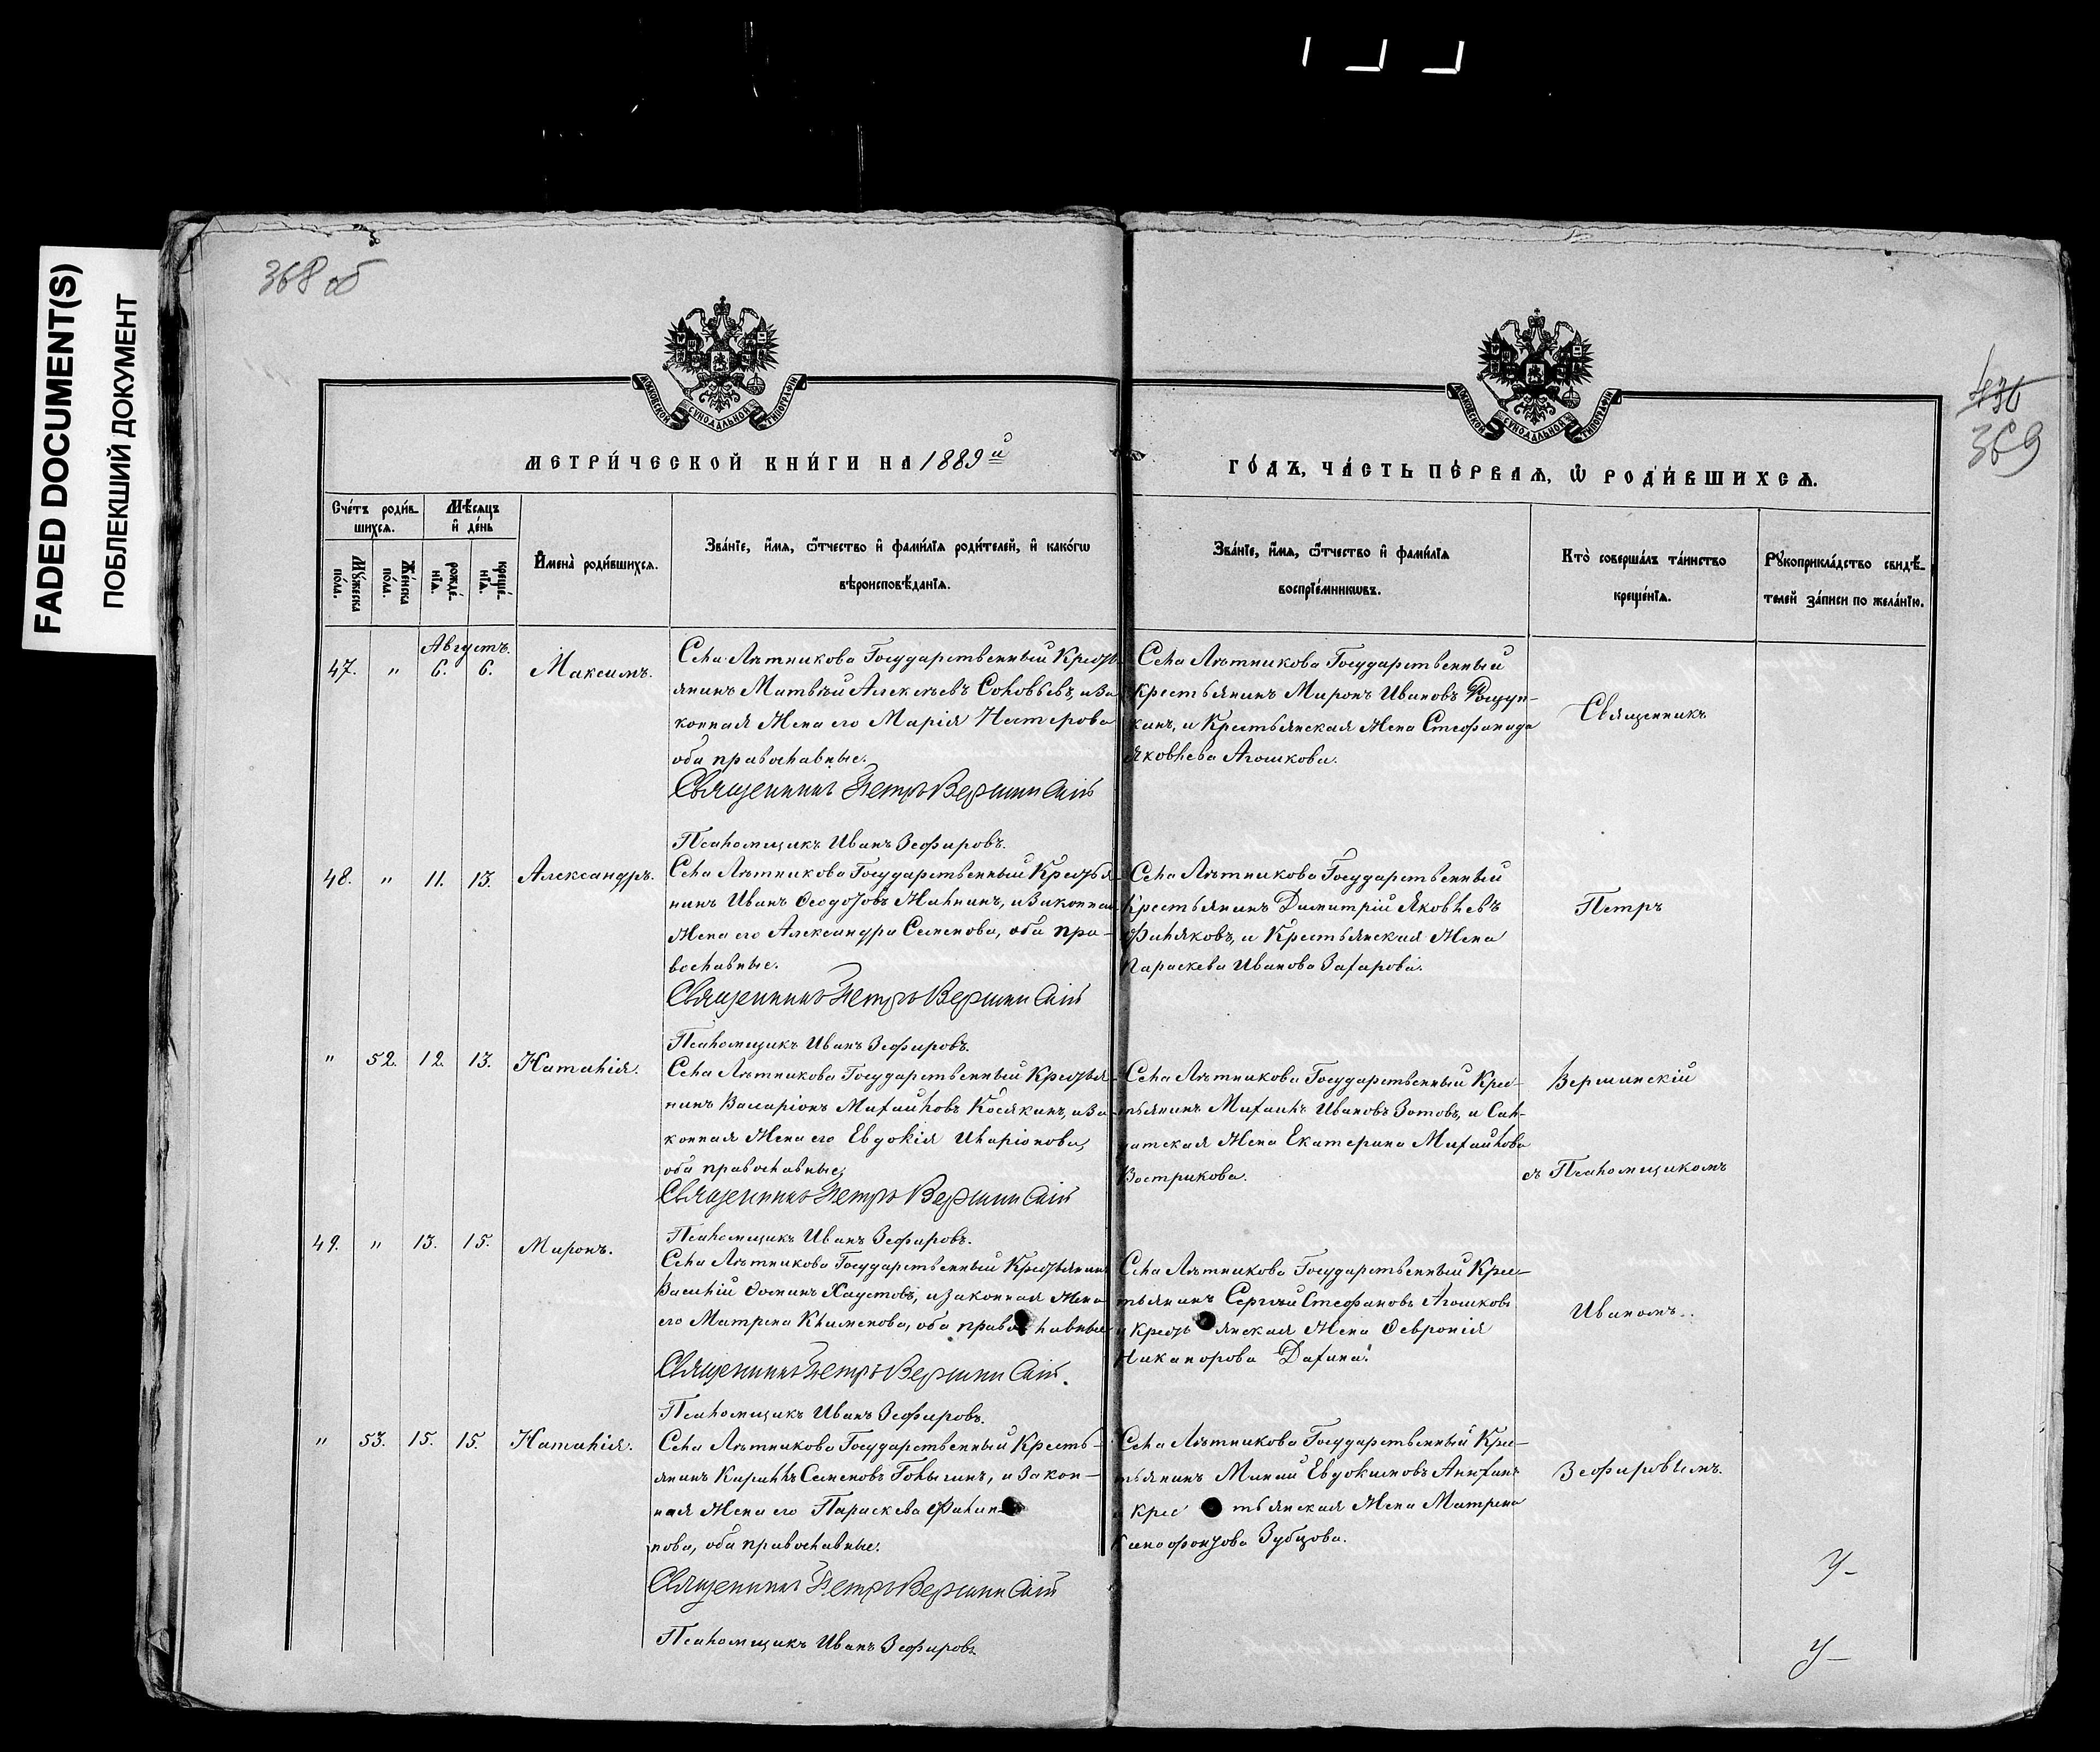 FADED DOCUMENT(S)
ПОБЛЕКШИЙ ДОКУМЕНТ
368 об
436
369
МОСКОВСКОЙ СѴНОДАЛЬНОЙ ТИПОГРАФІИ
МОСКОВСКОЙ СѴНОДАЛЬНОЙ ТИПОГРАФІИ
МЕТРИ́ЧЕСКОЙ КНИ́ГИ НА 1889й
ГО́ДЪ, ЧА́СТЬ ПЕ́РВАѦ, Ѿ РОДИ́ВШИХСѦ.
Сче́тъ роди́в-
шихсѧ.
Мѣ́сѧцъ
и҆ де́нь
Мꙋ́жеска
по́ла.
Же́нска
по́ла.
рожде́-
нїѧ.
креще́-
нїѧ.
И҆мена̀ роди́вшихсѧ.
Зва́нїе, и҆́мѧ, ѻ҆́тчество и҆ фами́лїѧ роди́телей, и҆ како́гѡ
вѣроисповѣ́данїѧ.
Зва́нїе, и҆́мѧ, ѻ҆́тчество и҆ фами́лїѧ
воспрїе́мникѡвъ.
Кто̀ соверша́лъ та́инство
креще́нїѧ.
Рꙋкоприкла́дство свидѣ́-
телей за́писи по жела́нїю.
Августъ.
47. " 6. 6. Максимъ.
Села Лѣтникова Государственный Кресть-
янинъ Матвѣй Алексѣевъ Соловьевъ, и за-
конная Жена его Марія Нестерова
оба православные.
Священникъ Петръ Вершинскій
Псаломщикъ Иванъ Зефировъ.
Села Лѣтникова Государственный
Крестьянинъ Миронъ Ивановъ
и Крестьянская Жена Стефанида
Яковлева Агошкова.
Священникъ
48. " 11. 13. Александръ.
Села Лѣтникова Государственный Крестья-
нинъ Иванъ Ѳеодозовъ Жилнинъ, и законная
Жена его Александра Семенова, оба пра-
вославные.
Священникъ Петръ Вершинскій
Псаломщикъ Иванъ Зефировъ.
Села Лѣтникова Государственный
Крестьянинъ Димитрій Яковлевъ
Филяковъ, и Крестьянская Жена
Параскева Иванова Захарова.
Петръ
" 52. 12. 13. Наталія.
Села Лѣтникова Государственный Крестья-
нинъ Вассаріонъ Михайловъ Косякинъ, и за-
конная Жена его Евдокія Иларіонова,
оба православные,
Священникъ Петръ Вершинскій
Псаломщикъ Иванъ Зефировъ.
Села Лѣтникова Государственный Крес-
тьянинъ Михаилъ Ивановъ Зотовъ, и Сал-
датская Жена Екатерина Михайлова
Вострикова.
Вершинскій
съ Псаломщикомъ
49. " 13. 15. Миронъ.
Села Лѣтникова Государственный Крестьянинъ
Василій Ѳоминъ Хаустовъ, и законная Жена
его Матрена Клименова, оба православные
Священникъ Петръ Вершинскій.
Псаломщикъ Иванъ Зефировъ.
Села Лѣтникова Государственный Крес-
тьянинъ Сергѣй Стефановъ Агошковъ
и Крестьянская Жена Ѳевронія
Никанорова Дахина.
Иваномъ.
" 53. 15. 15. Наталія.
Села Лѣтникова Государственный Кресть-
янинъ Кириллъ Семеновъ Голыгинъ, и закон-
ная Жена его Параскева Филип-
пова, оба православные.
Священникъ Петръ Вершинскій
Псаломщикъ Иванъ Зефировъ
Села Лѣтникова Государственный Крес-
тьянинъ Минай Евдокимовъ Анихинъ
и Крестьянская Жена Матрена
Ксенофонтова Зубцова.
Зефировымъ.
У-
У-